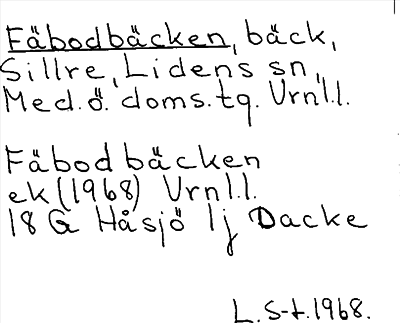 Fäbodbäcken, bäck,
Sillre, Lidens sn,
Med.ö. doms.tg. Vrnl.l.
Fäbodbäcken
ek (1968) Vrnl.l.
18 G Håsjö lj Dacke
L.S-t.1968.